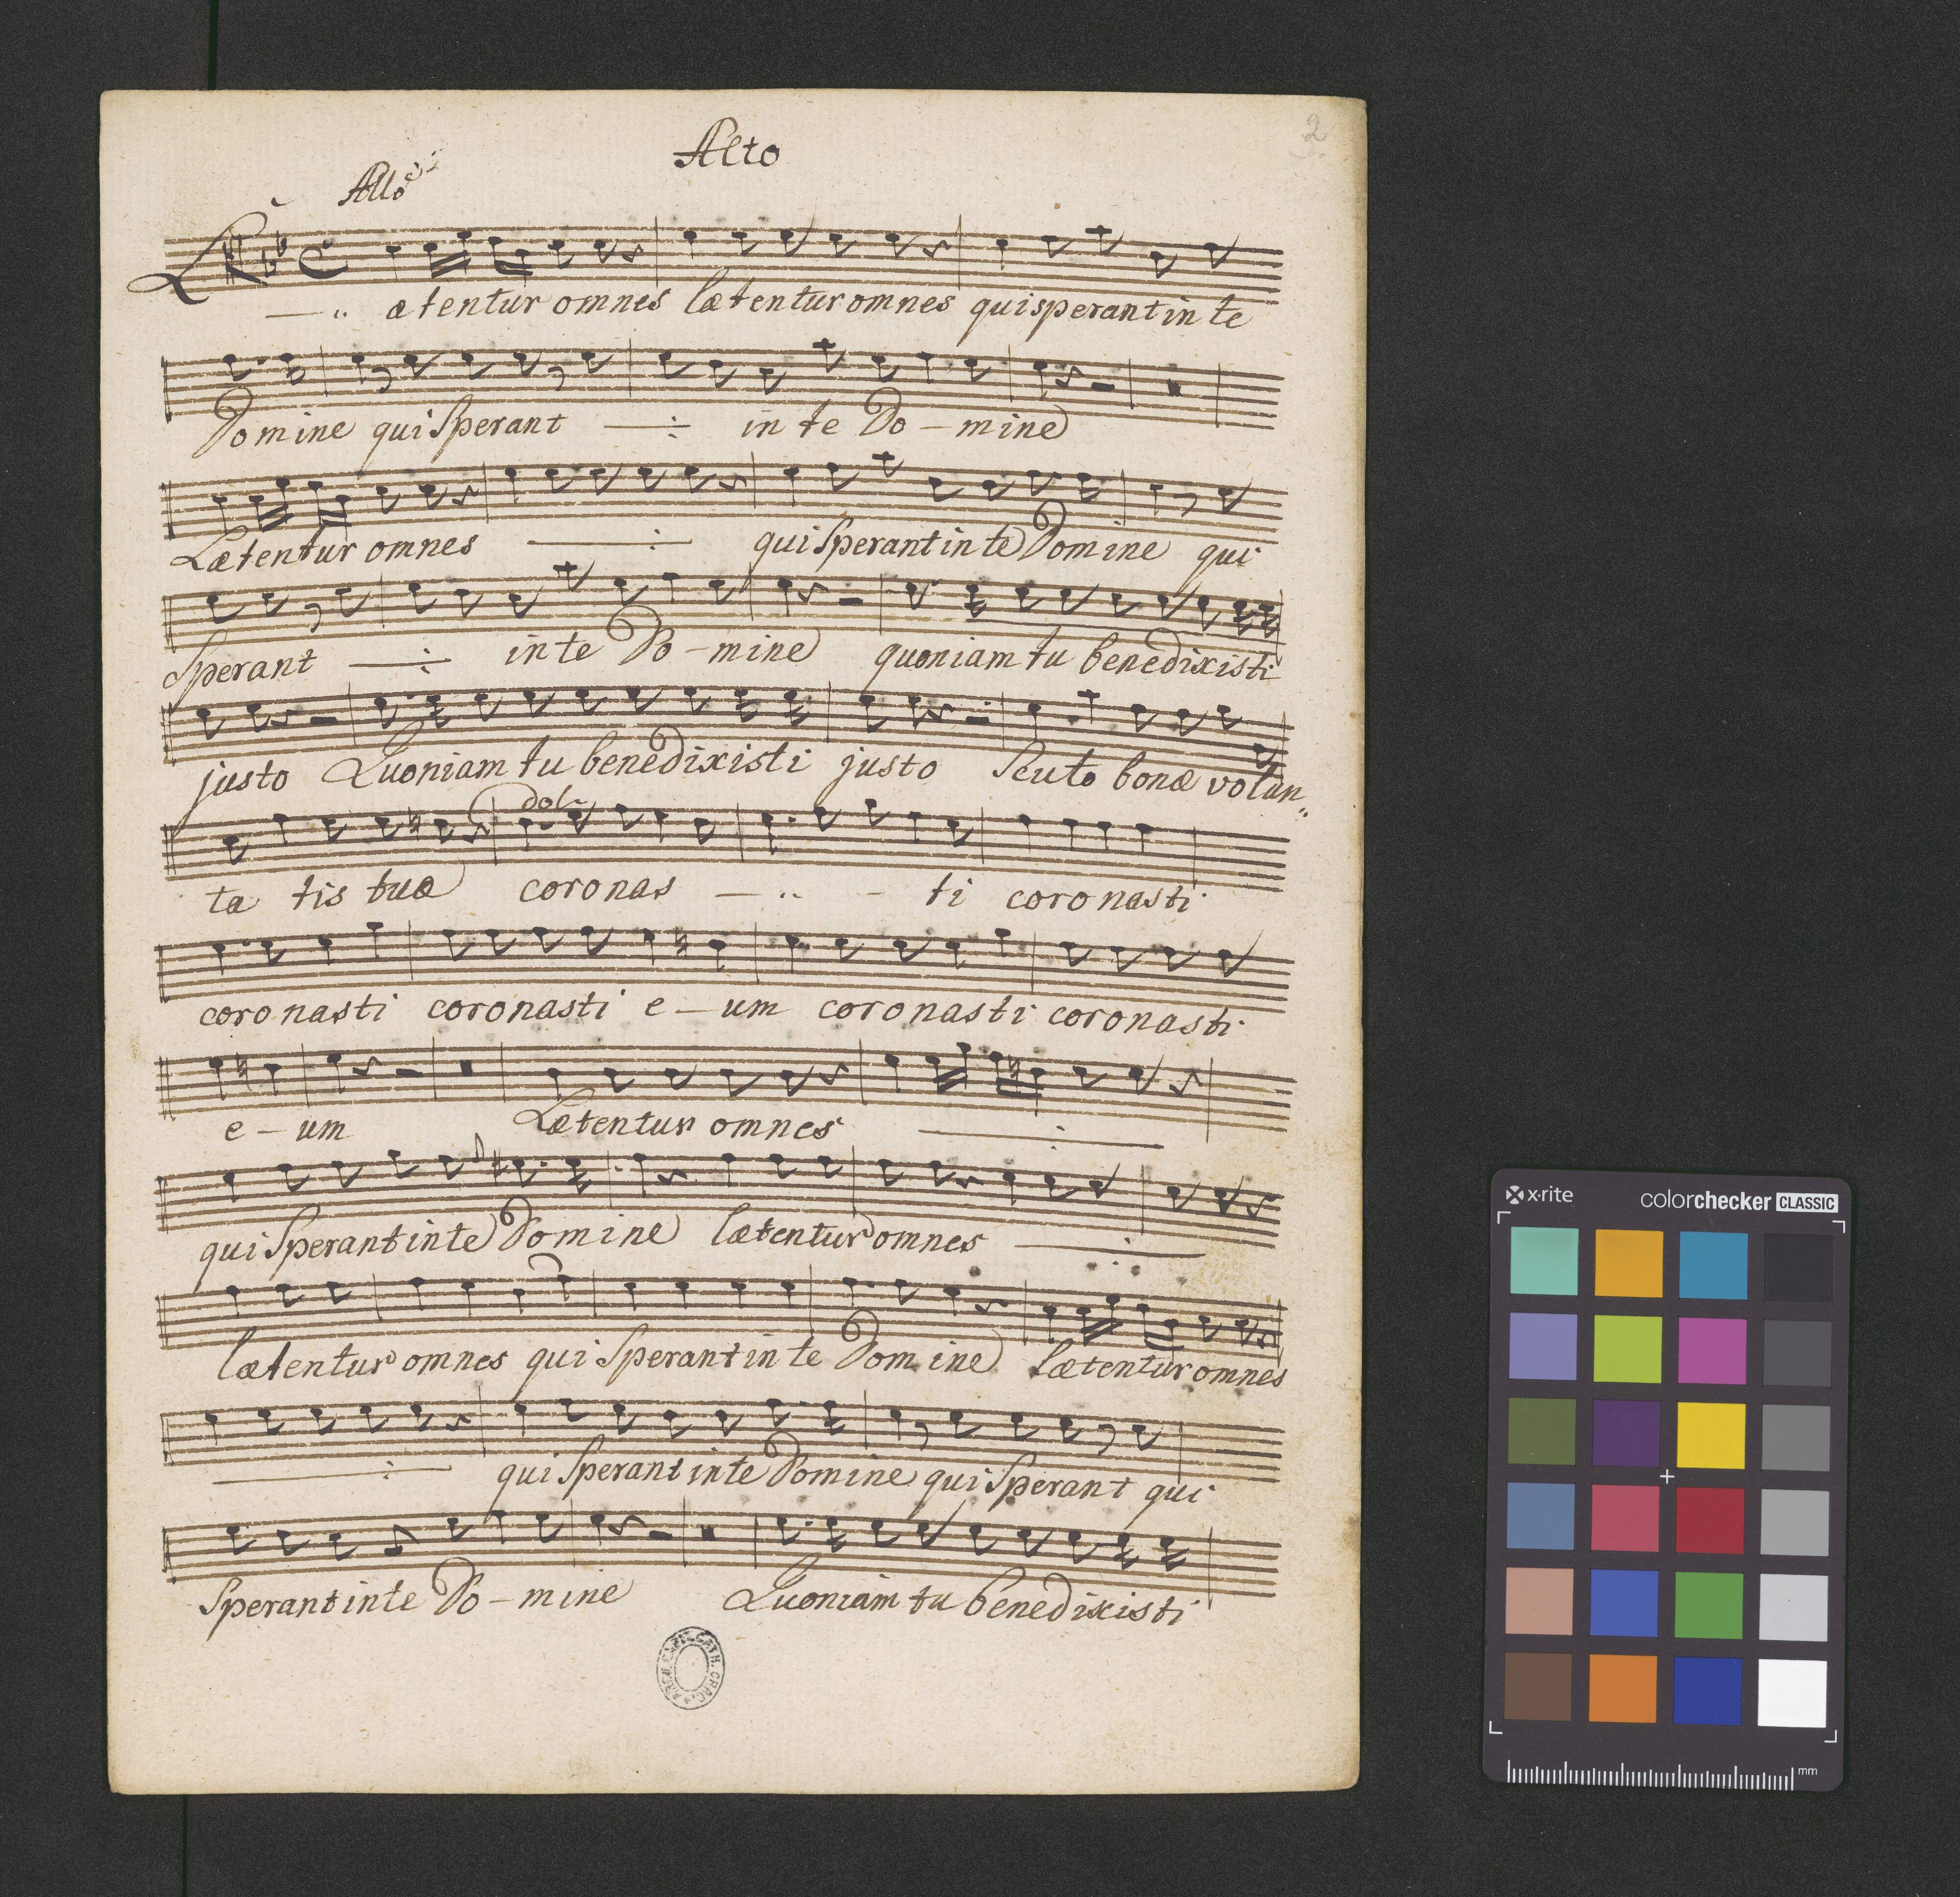 2
Alto
Allo
Lætentur omnes lætentur omnes qui sperant in te
Domine qui Sperant in te Do-mine
Lætentur omnes qui Sperant in te Domine qui
Sperant in te Do-mine quoniam tu benedixisti
justo Quoniam tu benedixisti justo Scuto bonæ volun
dol
ta tis tuæ coronas - ti coronasti
coronasti coronasti e-um coronasti coronasti
e-um Lætentur omnes
qui Sperant in te Domine lætentur omnes
lætentur omnes qui Sperant in te Domine Lætentur omnes
qui Sperant in te Domine qui Sperant qui
Sperant in te Do-mine Quoniam tu benedixisti
x·rite colorchecker CLASSIC
mm